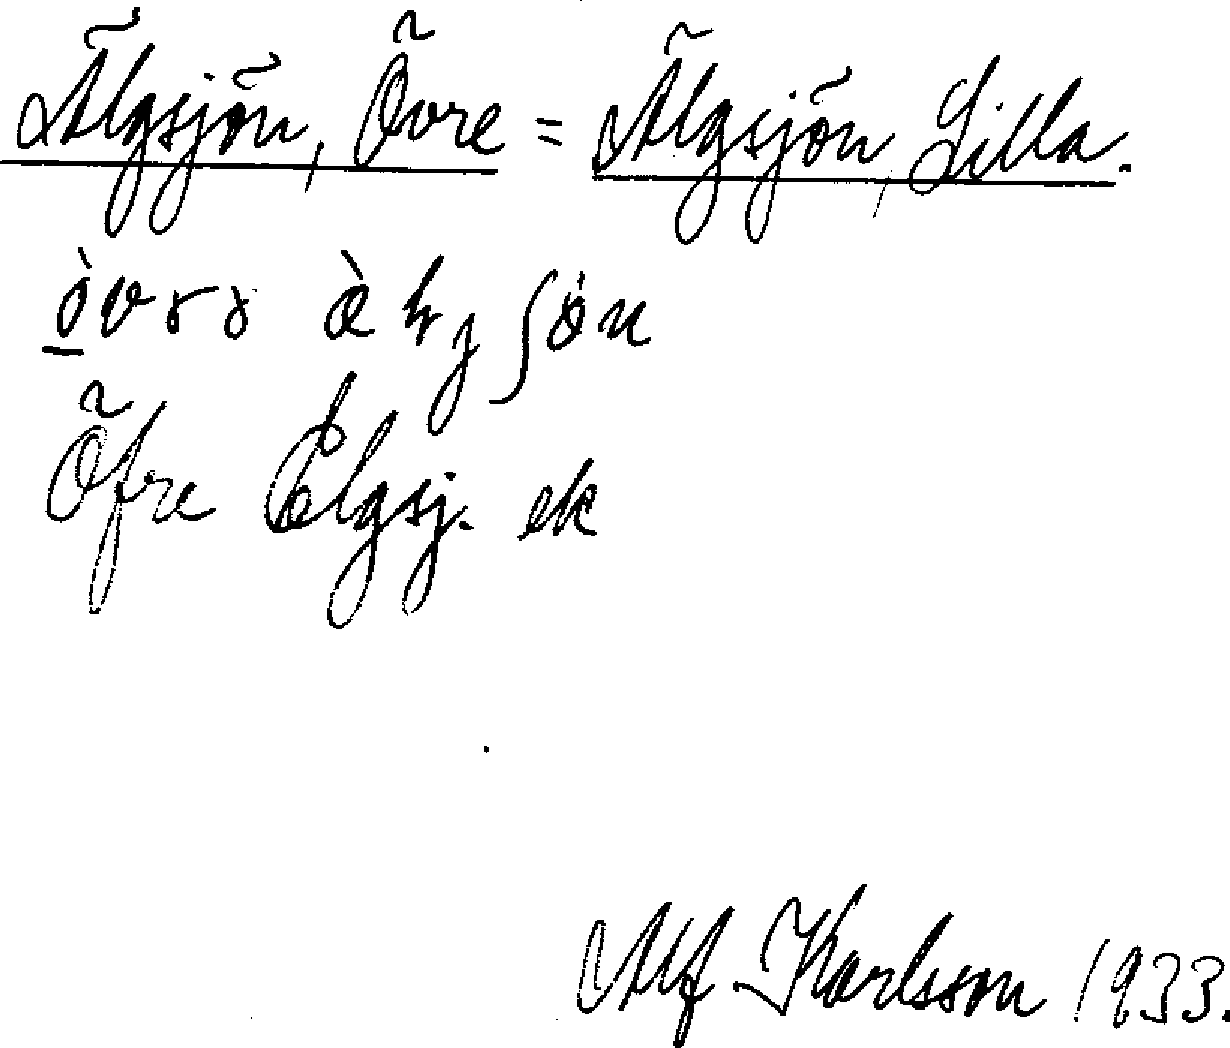 Älgsjön, Övre = Älgsjön, Lilla.
Öfre Elgsj. ek
Alf Karlsson 1933.